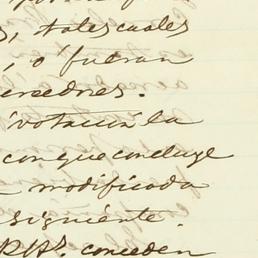 , tales cuales
, o' fueran
ersednes.
votación la
con que concluye
modificada
siguiente.
conceden